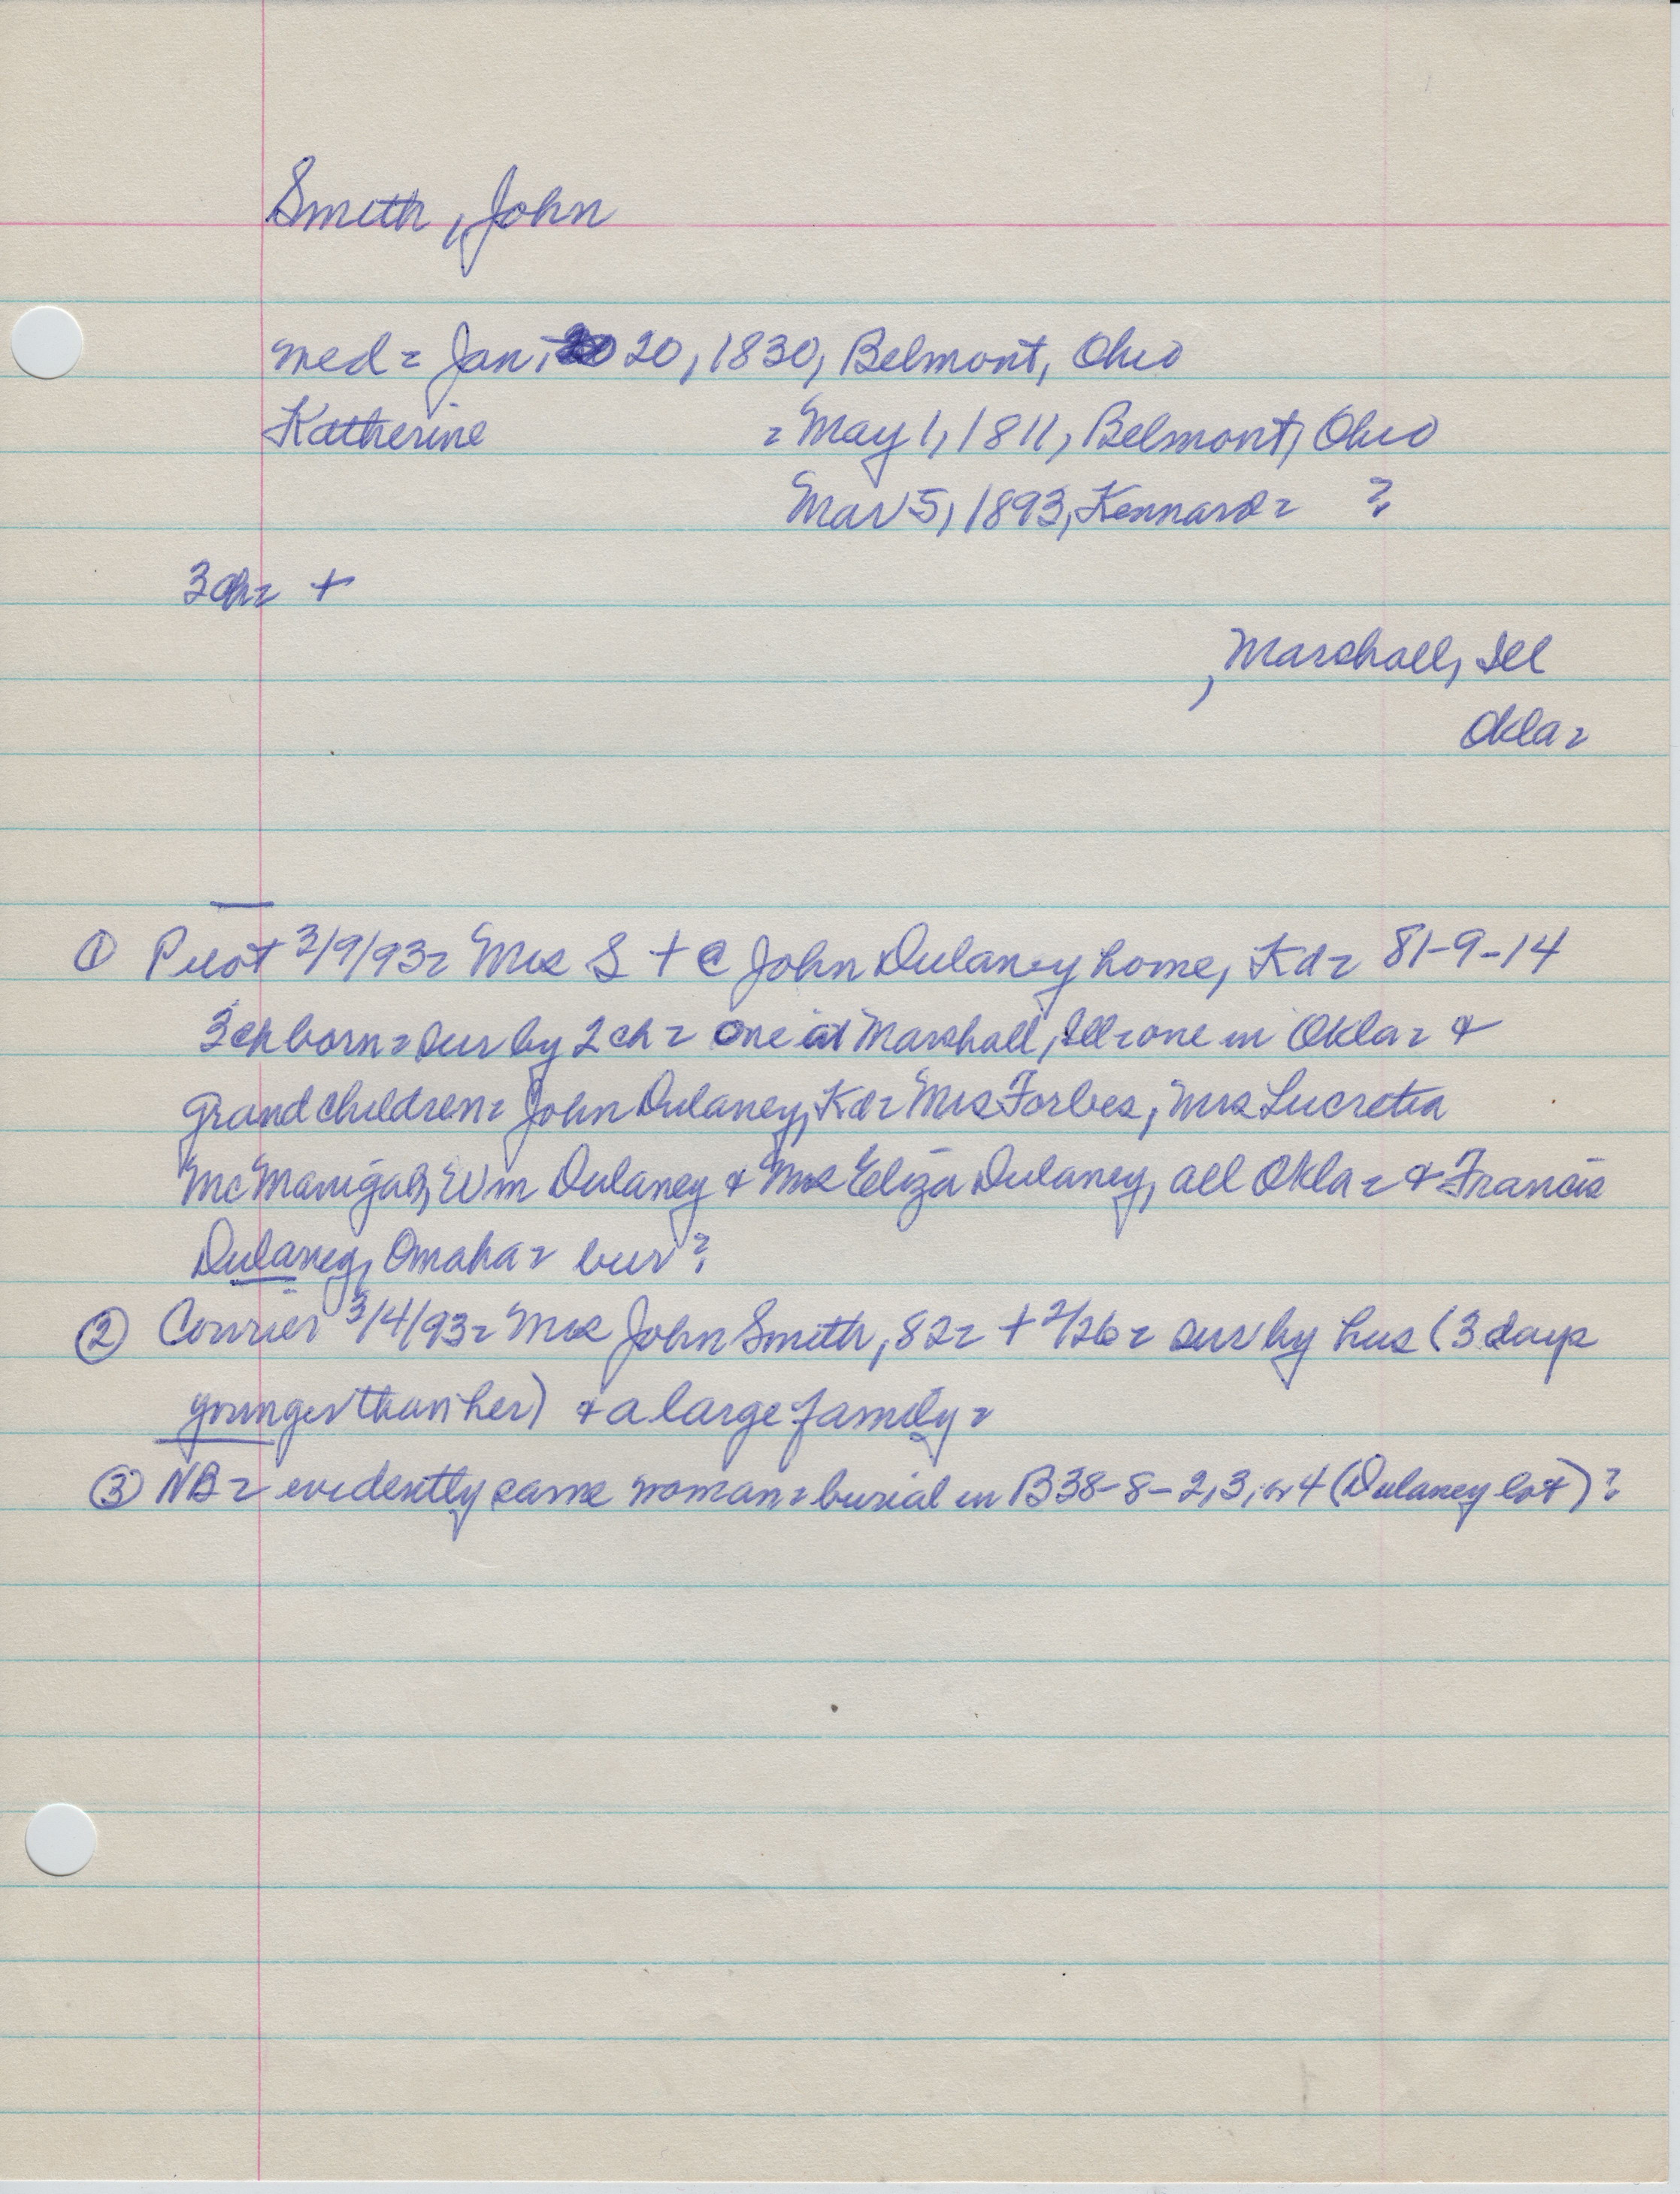 Smith, John
med = Jan. 20, 1830, Belmont, Ohio
Katherine = May 1, 1811, Belmont, Ohio
Mar 5, 1893, Kennard = ?
3 ch = +
, Marshall, Ill
Okla =
① Pilot 3/9/93 = Mrs S + @ John Dulaney home, Kd = 81-9-14
3 ch born = sur by 2 ch = One at Marshall, Ill = one in Okla = &
grandchildren = John Dulaney, Kd = Mrs Forbes, Mrs Lucretia
McManigal, Wm Dulaney & Mrs Eliza Dulaney, all Okla = & Francis
Dulaney, Omaha = bur?
② Courier 3/4/93 = Mrs John Smith, 82 = + 2/26 = sur by hus (3 days
younger than her) & a large family =
③ NB = evidently same woman = burial in B38-8-2,3, or 4 (Dulaney lot)?